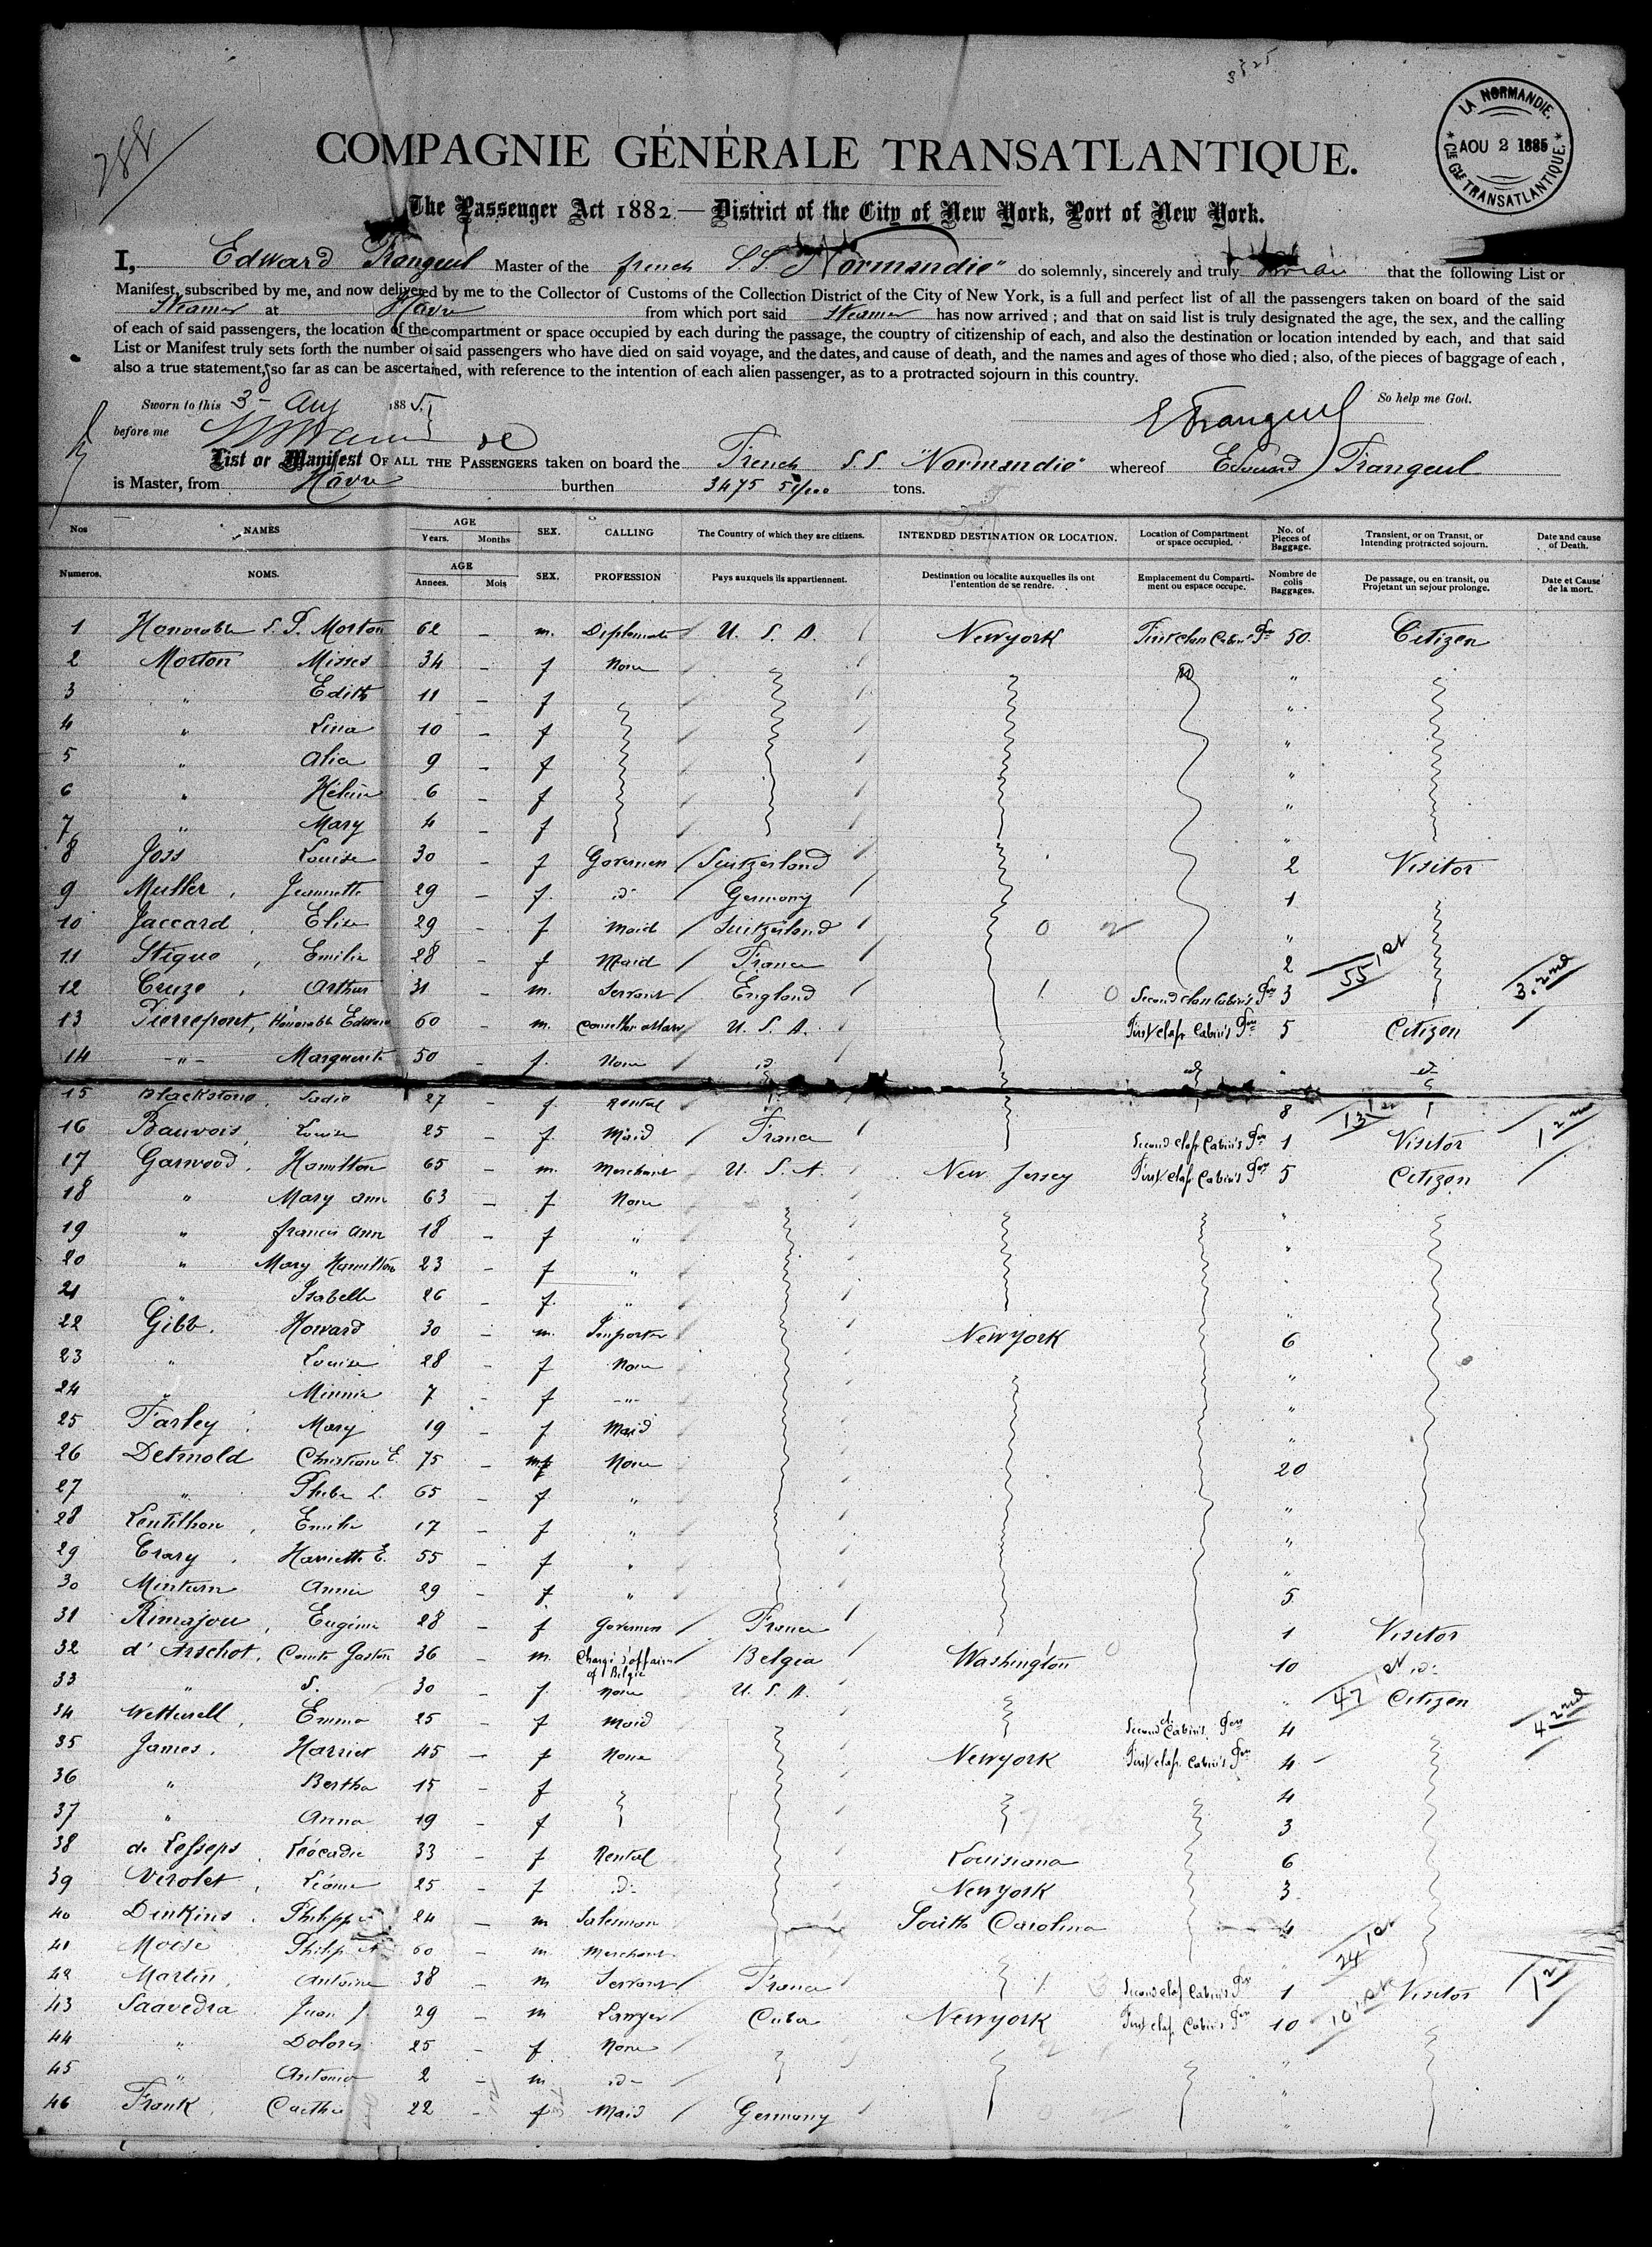 3325
288
LA NORMANDIE.
AOU 2 1885
Cie Gle TRANSATLANTIQUE.
COMPAGNIE GÉNÉRALE TRANSATLANTIQUE.
The Passenger Act 1882 — District of the City of New York, Port of New York.
I, Edward Frangeul Master of the french S.S. "Normandie" do solemnly, sincerely and truly swear that the following List or
Manifest, subscribed by me, and now delivered by me to the Collector of Customs of the Collection District of the City of New York, is a full and perfect list of all the passengers taken on board of the said
Steamer at Havre from which port said Steamer has now arrived ; and that on said list is truly designated the age, the sex, and the calling
of each of said passengers, the location of the compartment or space occupied by each during the passage, the country of citizenship of each, and also the destination or location intended by each, and that said
List or Manifest truly sets forth the number of said passengers who have died on said voyage, and the dates, and cause of death, and the names and ages of those who died ; also, of the pieces of baggage of each,
also a true statement, so far as can be ascertained, with reference to the intention of each alien passenger, as to a protracted sojourn in this country.
Sworn to this 3 - Aug 1885 So help me God.
before me E Frangeul
List or Manifest OF ALL THE PASSENGERS taken on board the French S.S. "Normandie" whereof Edward Frangeul
is Master, from Havre burthen 3475 51/100 tons.
Nos NAMES AGE Years. Months SEX. CALLING The Country of which they are citizens. INTENDED DESTINATION OR LOCATION. Location of Compartment or space occupied. No. of Pieces of Baggage. Transient, or on Transit, or Intending protracted sojourn. Date and cause of Death.
Numeros. NOMS. AGE Annees. Mois SEX. PROFESSION Pays auxquels ils appartiennent. Destination ou localite auxquelles ils ont l'entention de se rendre. Emplacement du Compartiment ou espace occupe. Nombre de colis Baggages. De passage, ou en transit, ou Projetant un sejour prolonge. Date et Cause de la mort.
1 Honorable S. P. Morton 62 - m. Diplomate U. S. A. Newyork First class Cabin's 50. Citizen
2 Morton Misses 34 - f None "
3 " Edith 11 - f "
4 " Lina 10 - f "
5 " Alia 9 - f "
6 " Hélène 6 - f "
7 " Mary 4 - f "
8 Joss Louise 30 - f Governess Switzerland 2 Visitor
9 Muller, Jeannette 29 - f. id- Germany 1
10 Jaccard, Elise 29 - f Maid Switzerland 0 "
11 Stique, Emilie 28 - f Maid France 2 55 1st
12 Cruze, Arthur 31 - m. Servant England 1 0 Second class Cabin's 3 3. 2nd
13 Pierrepont, Honorable Edward 60 - m. U. S. A. First class Cabin's 5 Citizen
14 -"- Marguerite 50 - f. None id id " id-
15 Blackstone, Sadie 27 - f. Rental 8 13 1st
16 Bauvois, Louise 25 - f. Maid France Second class Cabin's 1 Visitor 1 2nd
17 Garwood, Hamilton 65 - m. Merchant U. S. A. New Jersey First class Cabin's 5 Citizen
18 " Mary Ann 63 - f None "
19 " francis Ann 18 - f " "
20 " Mary Hamilton 23 - f "
21 " Isabelle 26 - f. " "
22 Gibb. Howard 30 - m. Importer Newyork 6
23 " Louise 28 - f None "
24 " Minnie 7 - f -"- "
25 Farley, Mary 19 - f Maid "
26 Detmold Christian E. 75 - m None 20
27 " Phebe L. 65 - f. " "
28 Lentilhon, Emilie 17 - f " "
29 Crary, Harriette E. 55 - f " "
30 Minturn Annie 29 - f. " 5
31 Rimajou, Eugénie 28 - f Governess France 1 Visitor
32 d'Arschot, Comte Gaston 36 - m. Chargé d'affaires of Belgie Belgia Washington 10 id-
33 " S. 30 - f. None U. S. A. " 47 1st Citizen
34 Wetherell, Emma 25 - f Maid Second cl. Cabin's 4 4 2nd
35 James, Harriet 45 - f None Newyork First class Cabin's 4
36 " Bertha 15 - f 4
37 " Anna 19 - f 3
38 de Lesseps, Léocadie 33 - f Rental Louisiana 6
39 Verolet, Léonie 25 - f id- Newyork 3
40 Dinkins, Philippe 24 - m Salesman South Carolina 4
41 Moise Philip A 60 - m. Merchant " 24 1st
42 Martin, Antoine 38 - m Servant France 1 Second class Cabin's 1 Visitor 1 2nd
43 Saavedra, Juan J. 29 - m Lawyer Cuba Newyork First class Cabin's 10 10 1st
44 " Dolores 25 - f. None "
45 " Antonio 2 - m id- "
46 Frank, 22 - f Maid Germany "